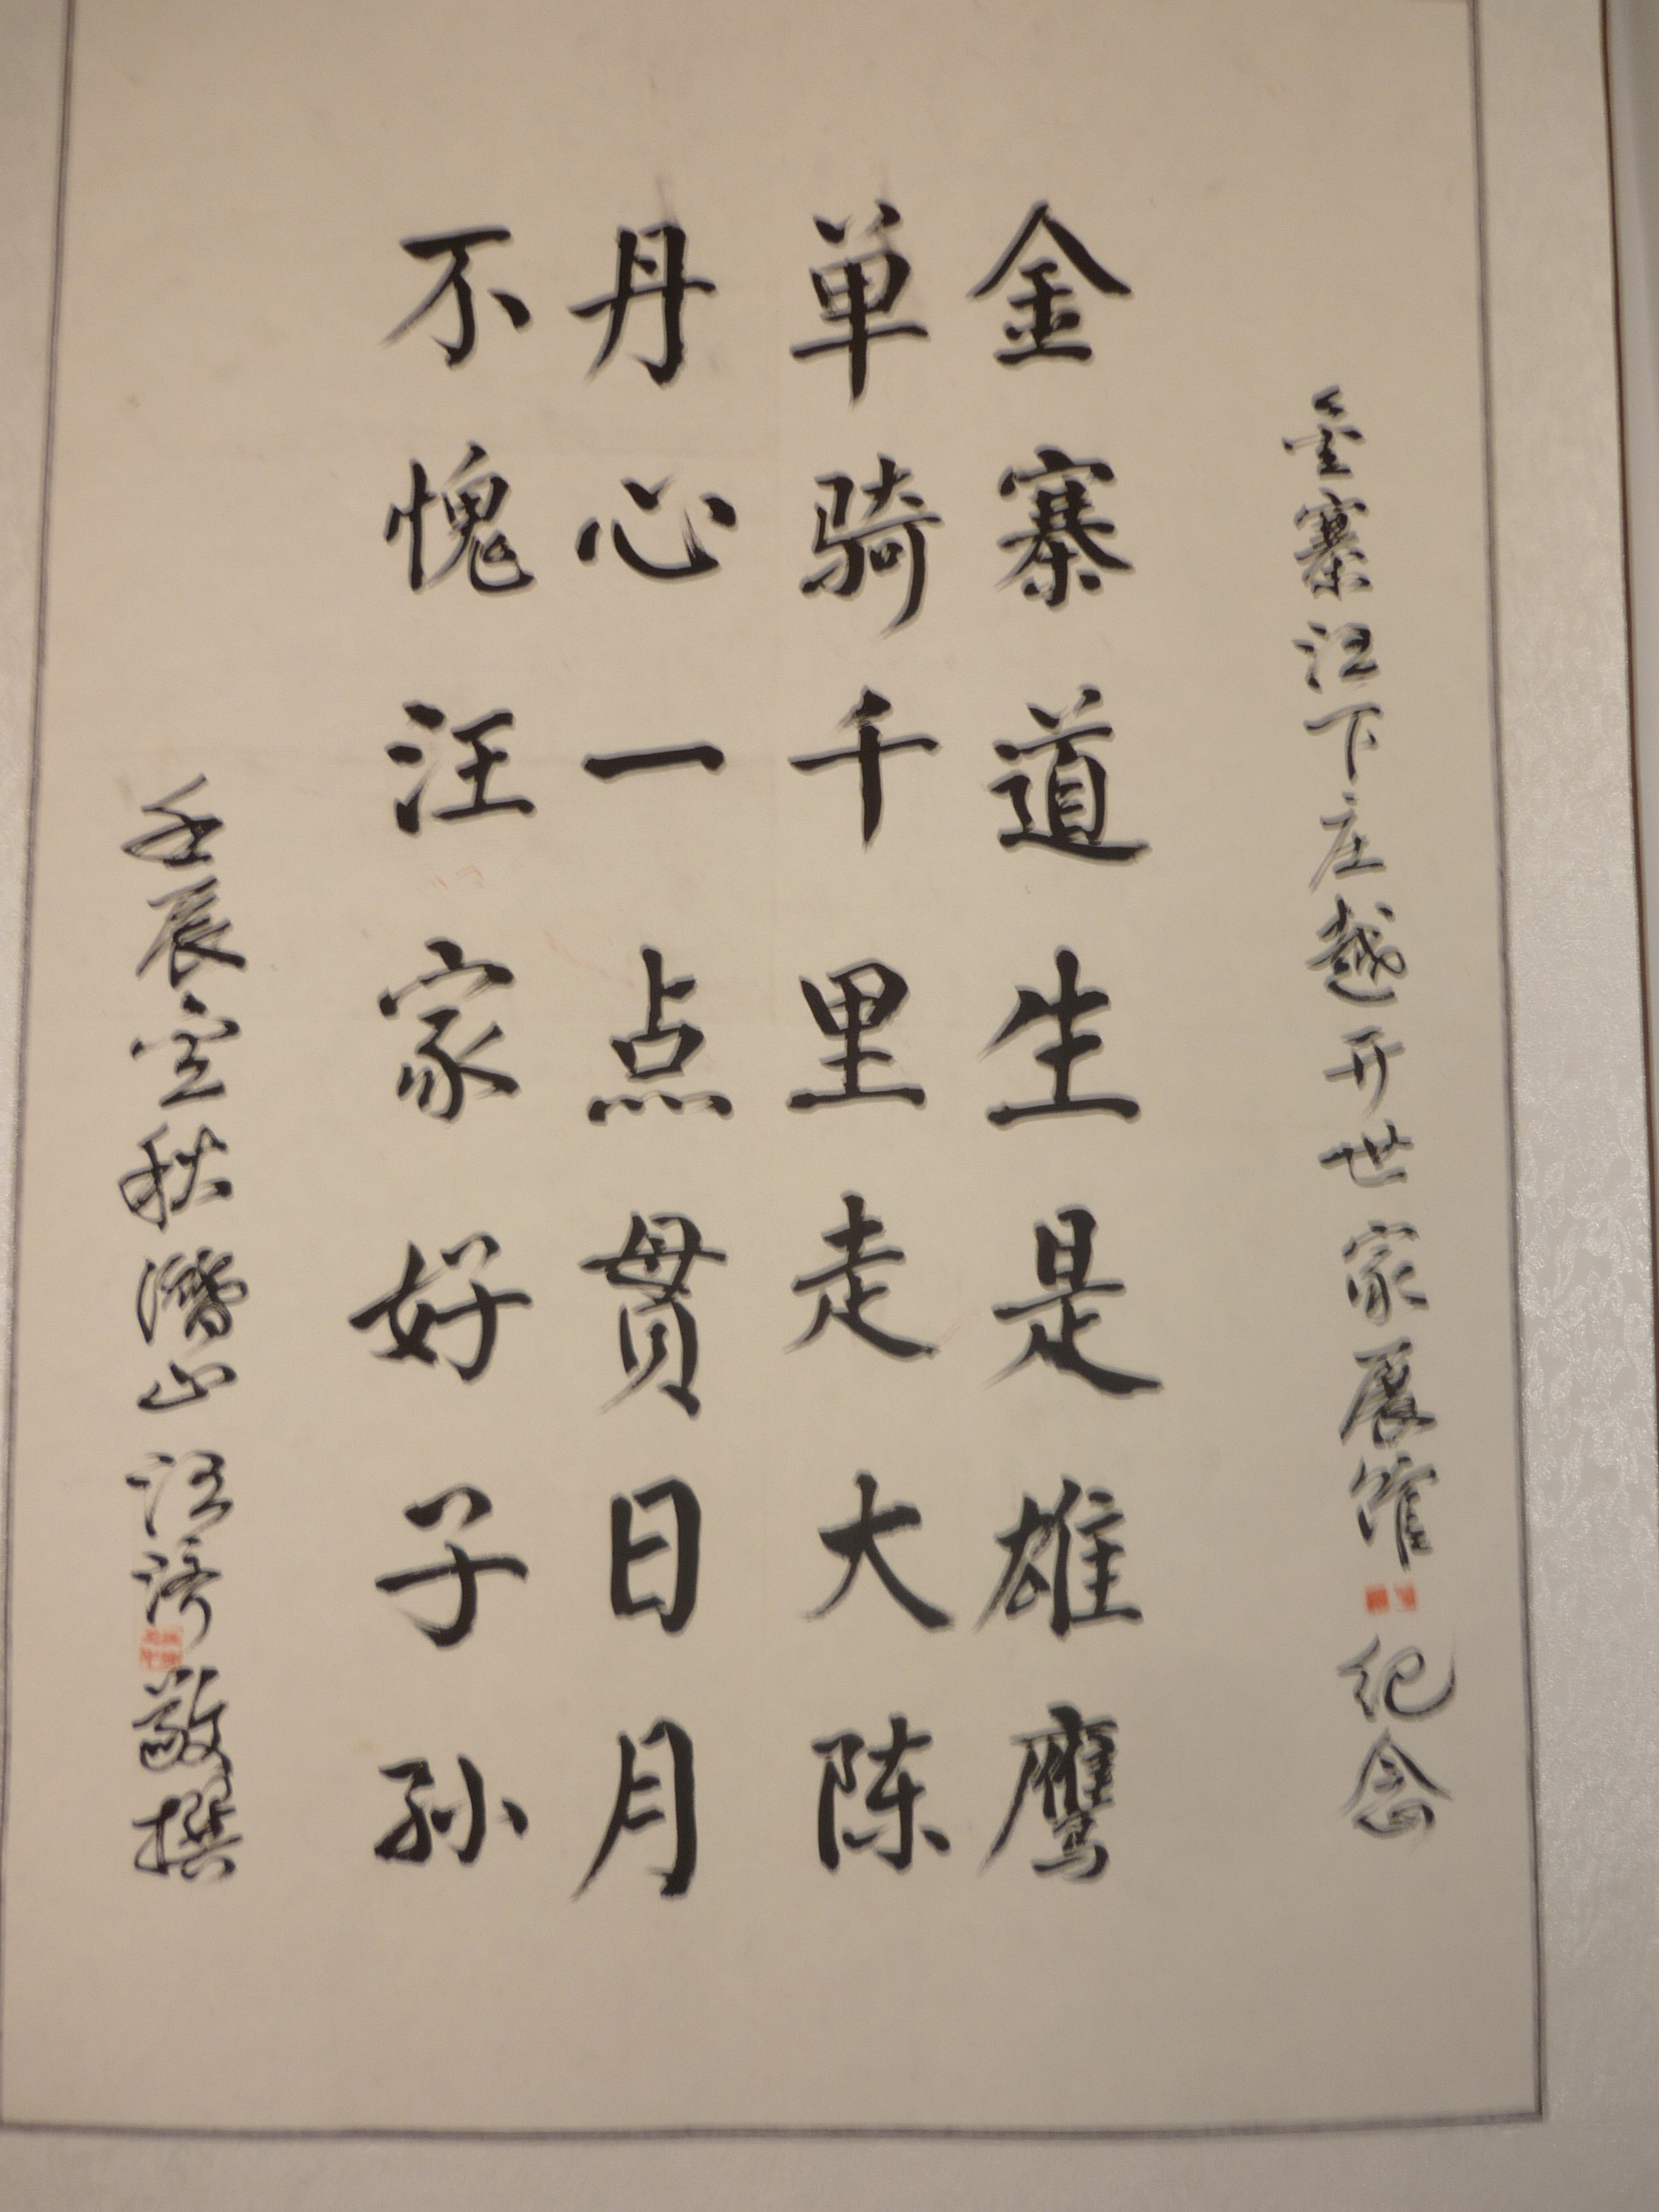 金寨汪下庄越开世家展馆纪念
金寨道生是雄鹰
单骑千里走大陈
丹心一点贯日月
不愧汪家好子孙
壬辰立秋潜山汪涛敬撰